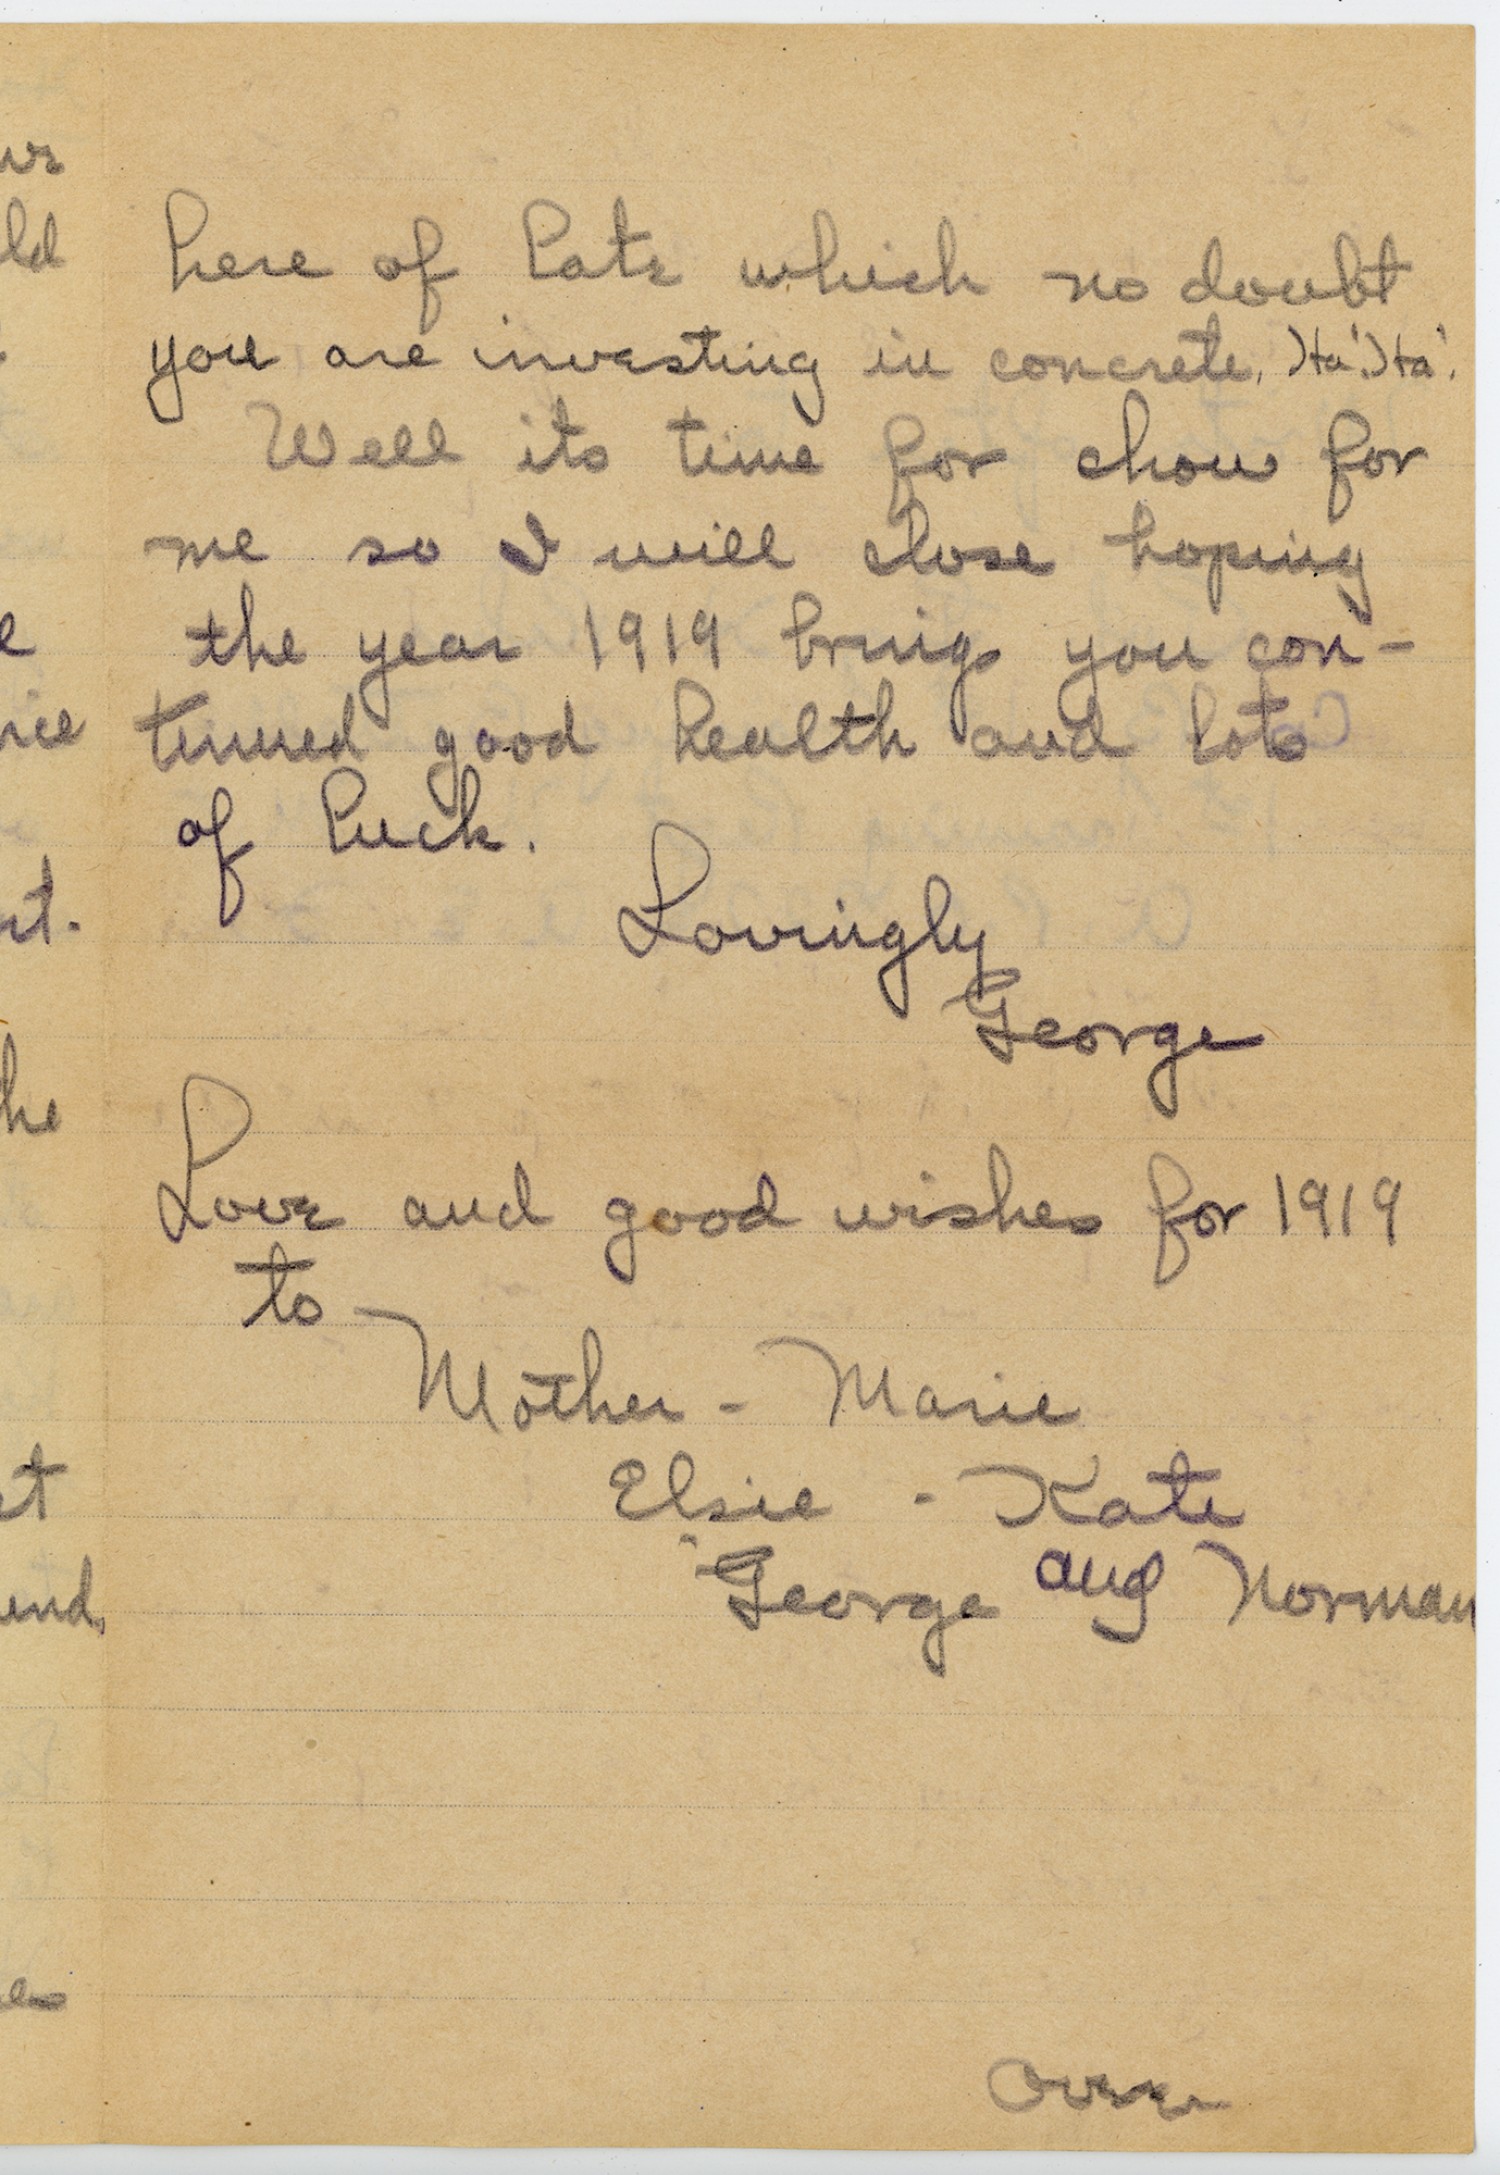 here of late which no doubt
you are investing in concrete. Ha! Ha!
Well its time for chow for
me so I will close hoping
the year 1919 brings you con-
tinued good health and lots
of luck.
Lovingly
George
Love and good wishes for 1919
to
Mother - Marie
Elsie - Kate
George and Norman
over